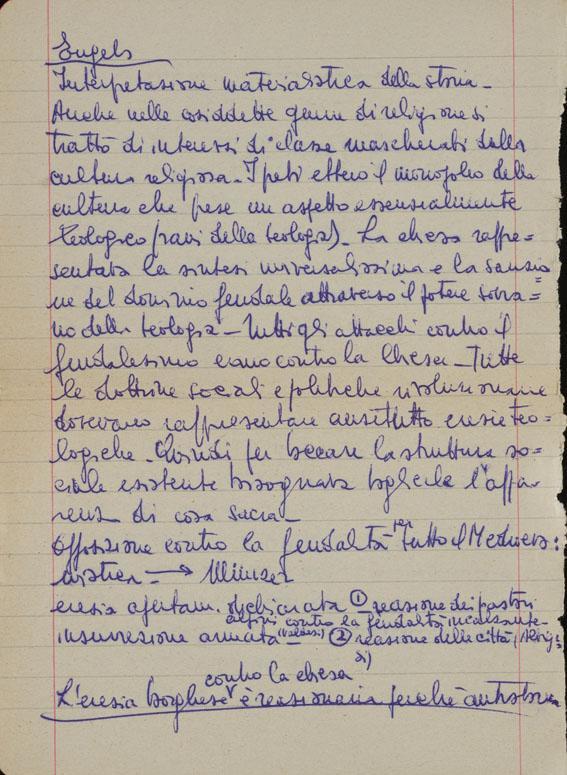 Engels
Interpretazione materialistica della storia -
Anche nelle cosiddette guerre di religione si
trattò di interessi di classe mascherati dalla
cultura religiosa - I preti ebbero il monopolio della
cultura che prese un aspetto essenzialmente
teologico (rami della teologia). La chiesa rappre=
sentava la sintesi universalissima e la sanzio
ne del dominio feudale attraverso il potere sovra=
no della teologia - Tutti gli attacchi contro il
feudalesimo erano contro la Chiesa - Tutte
le dottrine sociali e politiche rivoluzionarie
dovevano rappresentare anzitutto eresie teo=
logiche - Quindi per toccare la struttura so=
ciale esistente bisognava toglierle l'appa
renza di cosa sacra -
Opposizione contro la feudalità per tutto il Medioevo:
mistica → Münzer
eresia apertam. dichiarata ① reazione dei pastori
alpini contro la feudalità incalzante -
insurrezione armata (Valdesi) ② reazione delle città (Albig=
si)
contro la chiesa
L'eresia borghese è reazionaria perché